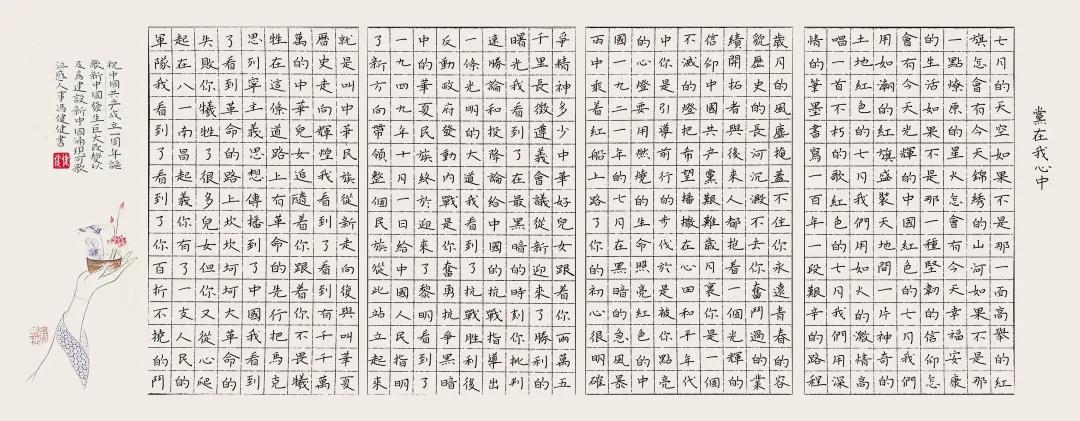 黨在我心中
七月的天空如果不是那一面高擎的紅
旗怎會有今天錦綉的山河如果不是那
一點燎原的星火怎會有今天幸福安康
的生活如果不是那一種堅韌的信仰怎
會有今天光輝的中國紅色的七月我們
用如潮的紅旗盛裝天地間一片神奇的
土地紅色的七月我們用如火的激情高
唱一首不朽的歌紅色的七月我們用深
情的筆墨書寫一百年一段艱辛的路程
歲月的風塵掩蓋不住你永遠青春的容
貌歷史的長河沉澱不去你奮鬥過的業
績開拓者與後來人都抱着一個光輝的
信仰中國共产黨艱難歲月裏你是一個
不滅的燈把希望播撒在心田和平年代
中你是引導前行的步伐於是被你點亮
的心燈要用燃燒的生命照亮紅色的中
國一九二一年的七月在黑暗的急風暴
雨中乘着紅船上路了你的初心很明確
爭精神多少中華好兒女跟着你兩萬五
千里長徵遵義會議從新迎來了勝利的
曙光我看到了在最黑暗的時刻你批判
速勝論和投降論給中國的抗戰指導出
一條光明的大道我看到了抗戰勝利後
反動政府發動内戰是你奮勇抗爭黑暗
中的華夏民族終於迎來了黎明看到了
一九四九年十月一日給中國人民指明
了新方向帶領整個民族從此站立起來
就是叫中華民族從新走向復興叫華夏
曆史走向輝煌我看到了看到有千千萬
萬的中華兒女追隨着你跟着你不畏犧
牲在這條道路上有革命的先行把馬克
思列寧主義思想傳播到了中國我看到
了看到革命的路上坎坎坷坷大革命的
失敗你犧牲了很多兒女但你又從心爬
起在八一南昌起義你有了一支人民的
軍隊我看到了看到了你百折不撓的鬥
祝中國共产成立一百年謳
歌新中國發生巨大改變以
及為建設新中國涌現可歌
泣感人事馮健健書